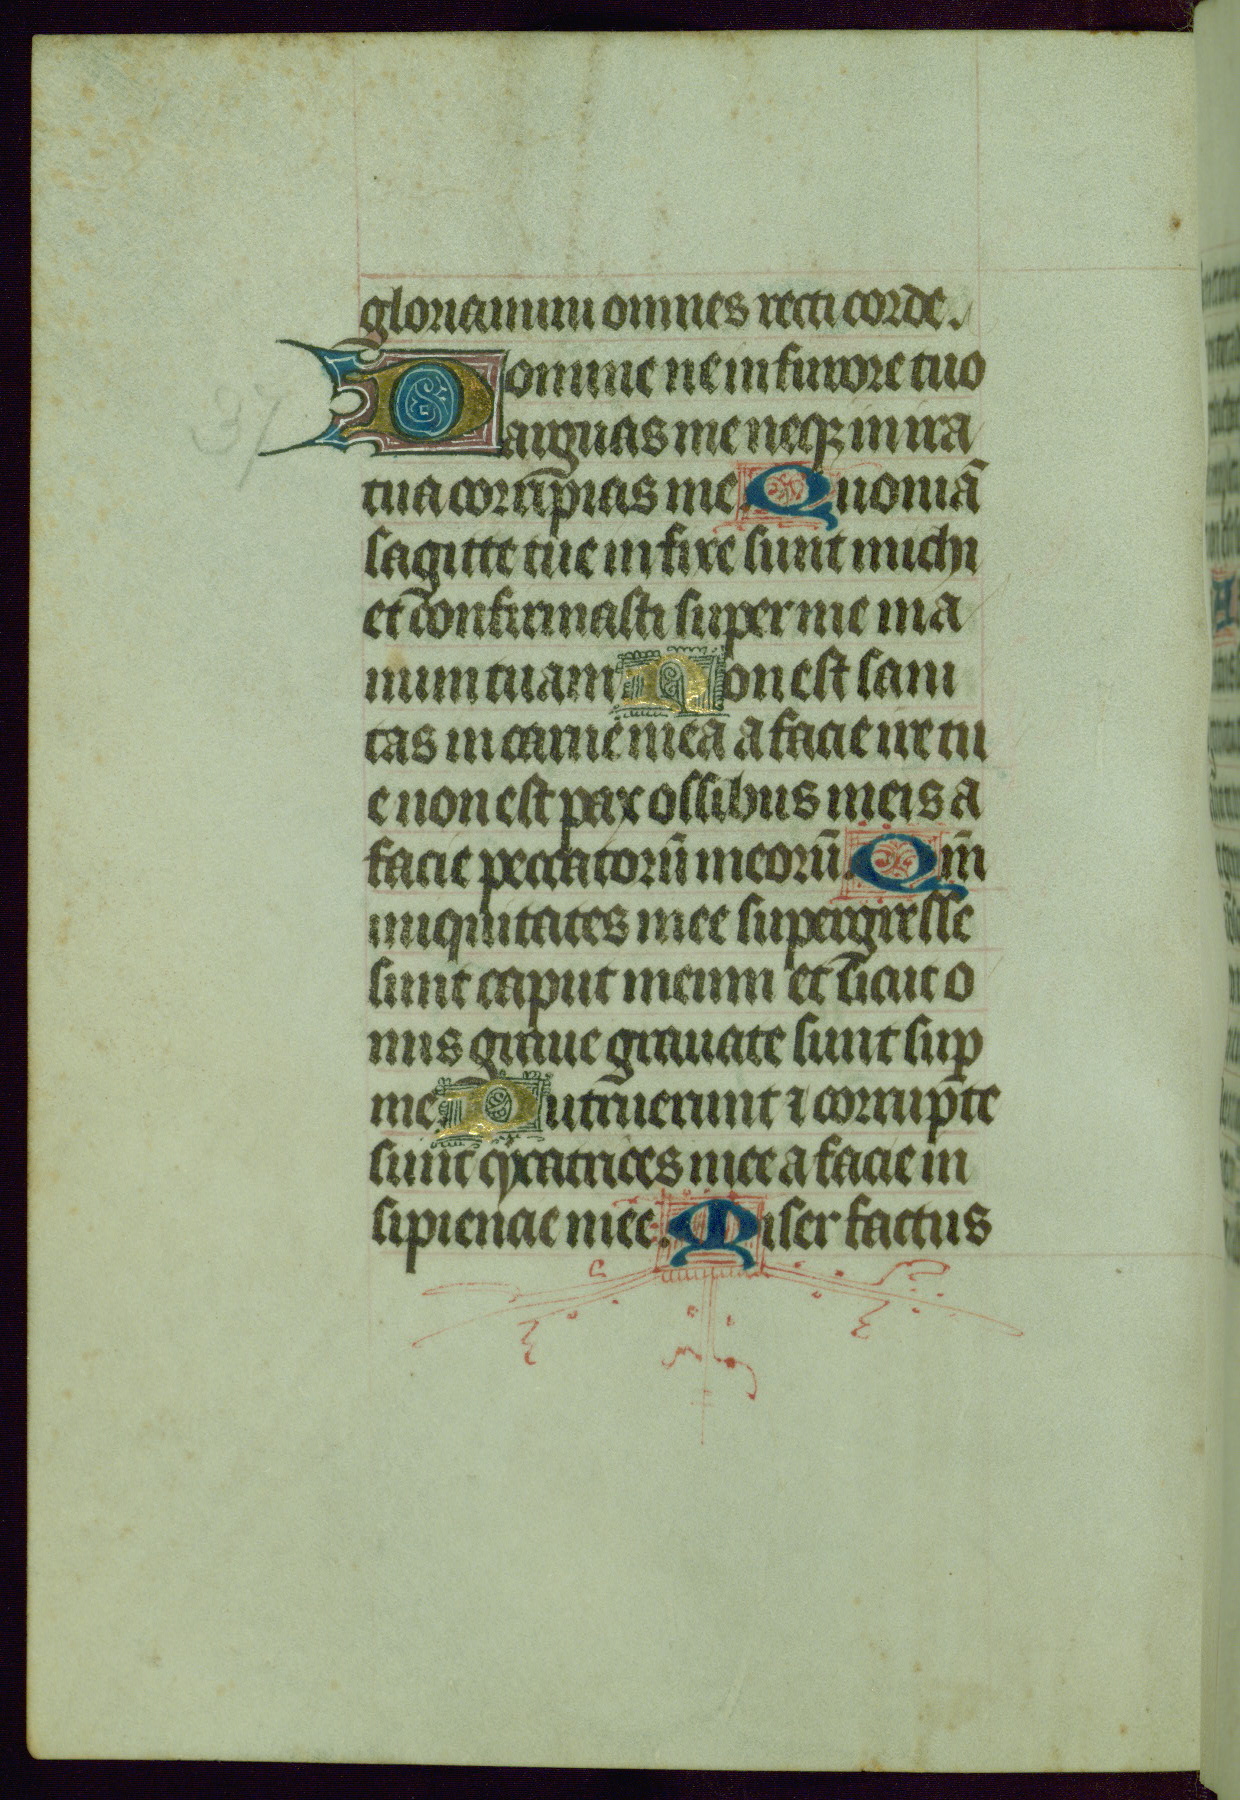 gloriamini omnes recti corde.
Domine ne in furore tuo
arguas me neqꝫ in ira
tua corrīpias me. Quoniā
sagitte tue in fixe sunt michi
et cōnfirmasti super me ma
num tuam. Non est sani
tas in carne mea a facie ire tu
e non est pax ossibus meis a
facie peccatorū meorū. Qm̄
iniquitates mee supergresse
sunt caput meum et sicut o
nus graue grauate sunt sup̄
me. Putruerunt ⁊ corrupte
sunt cycatrices mee a facie in
sipiencie mee. Miser factus
37